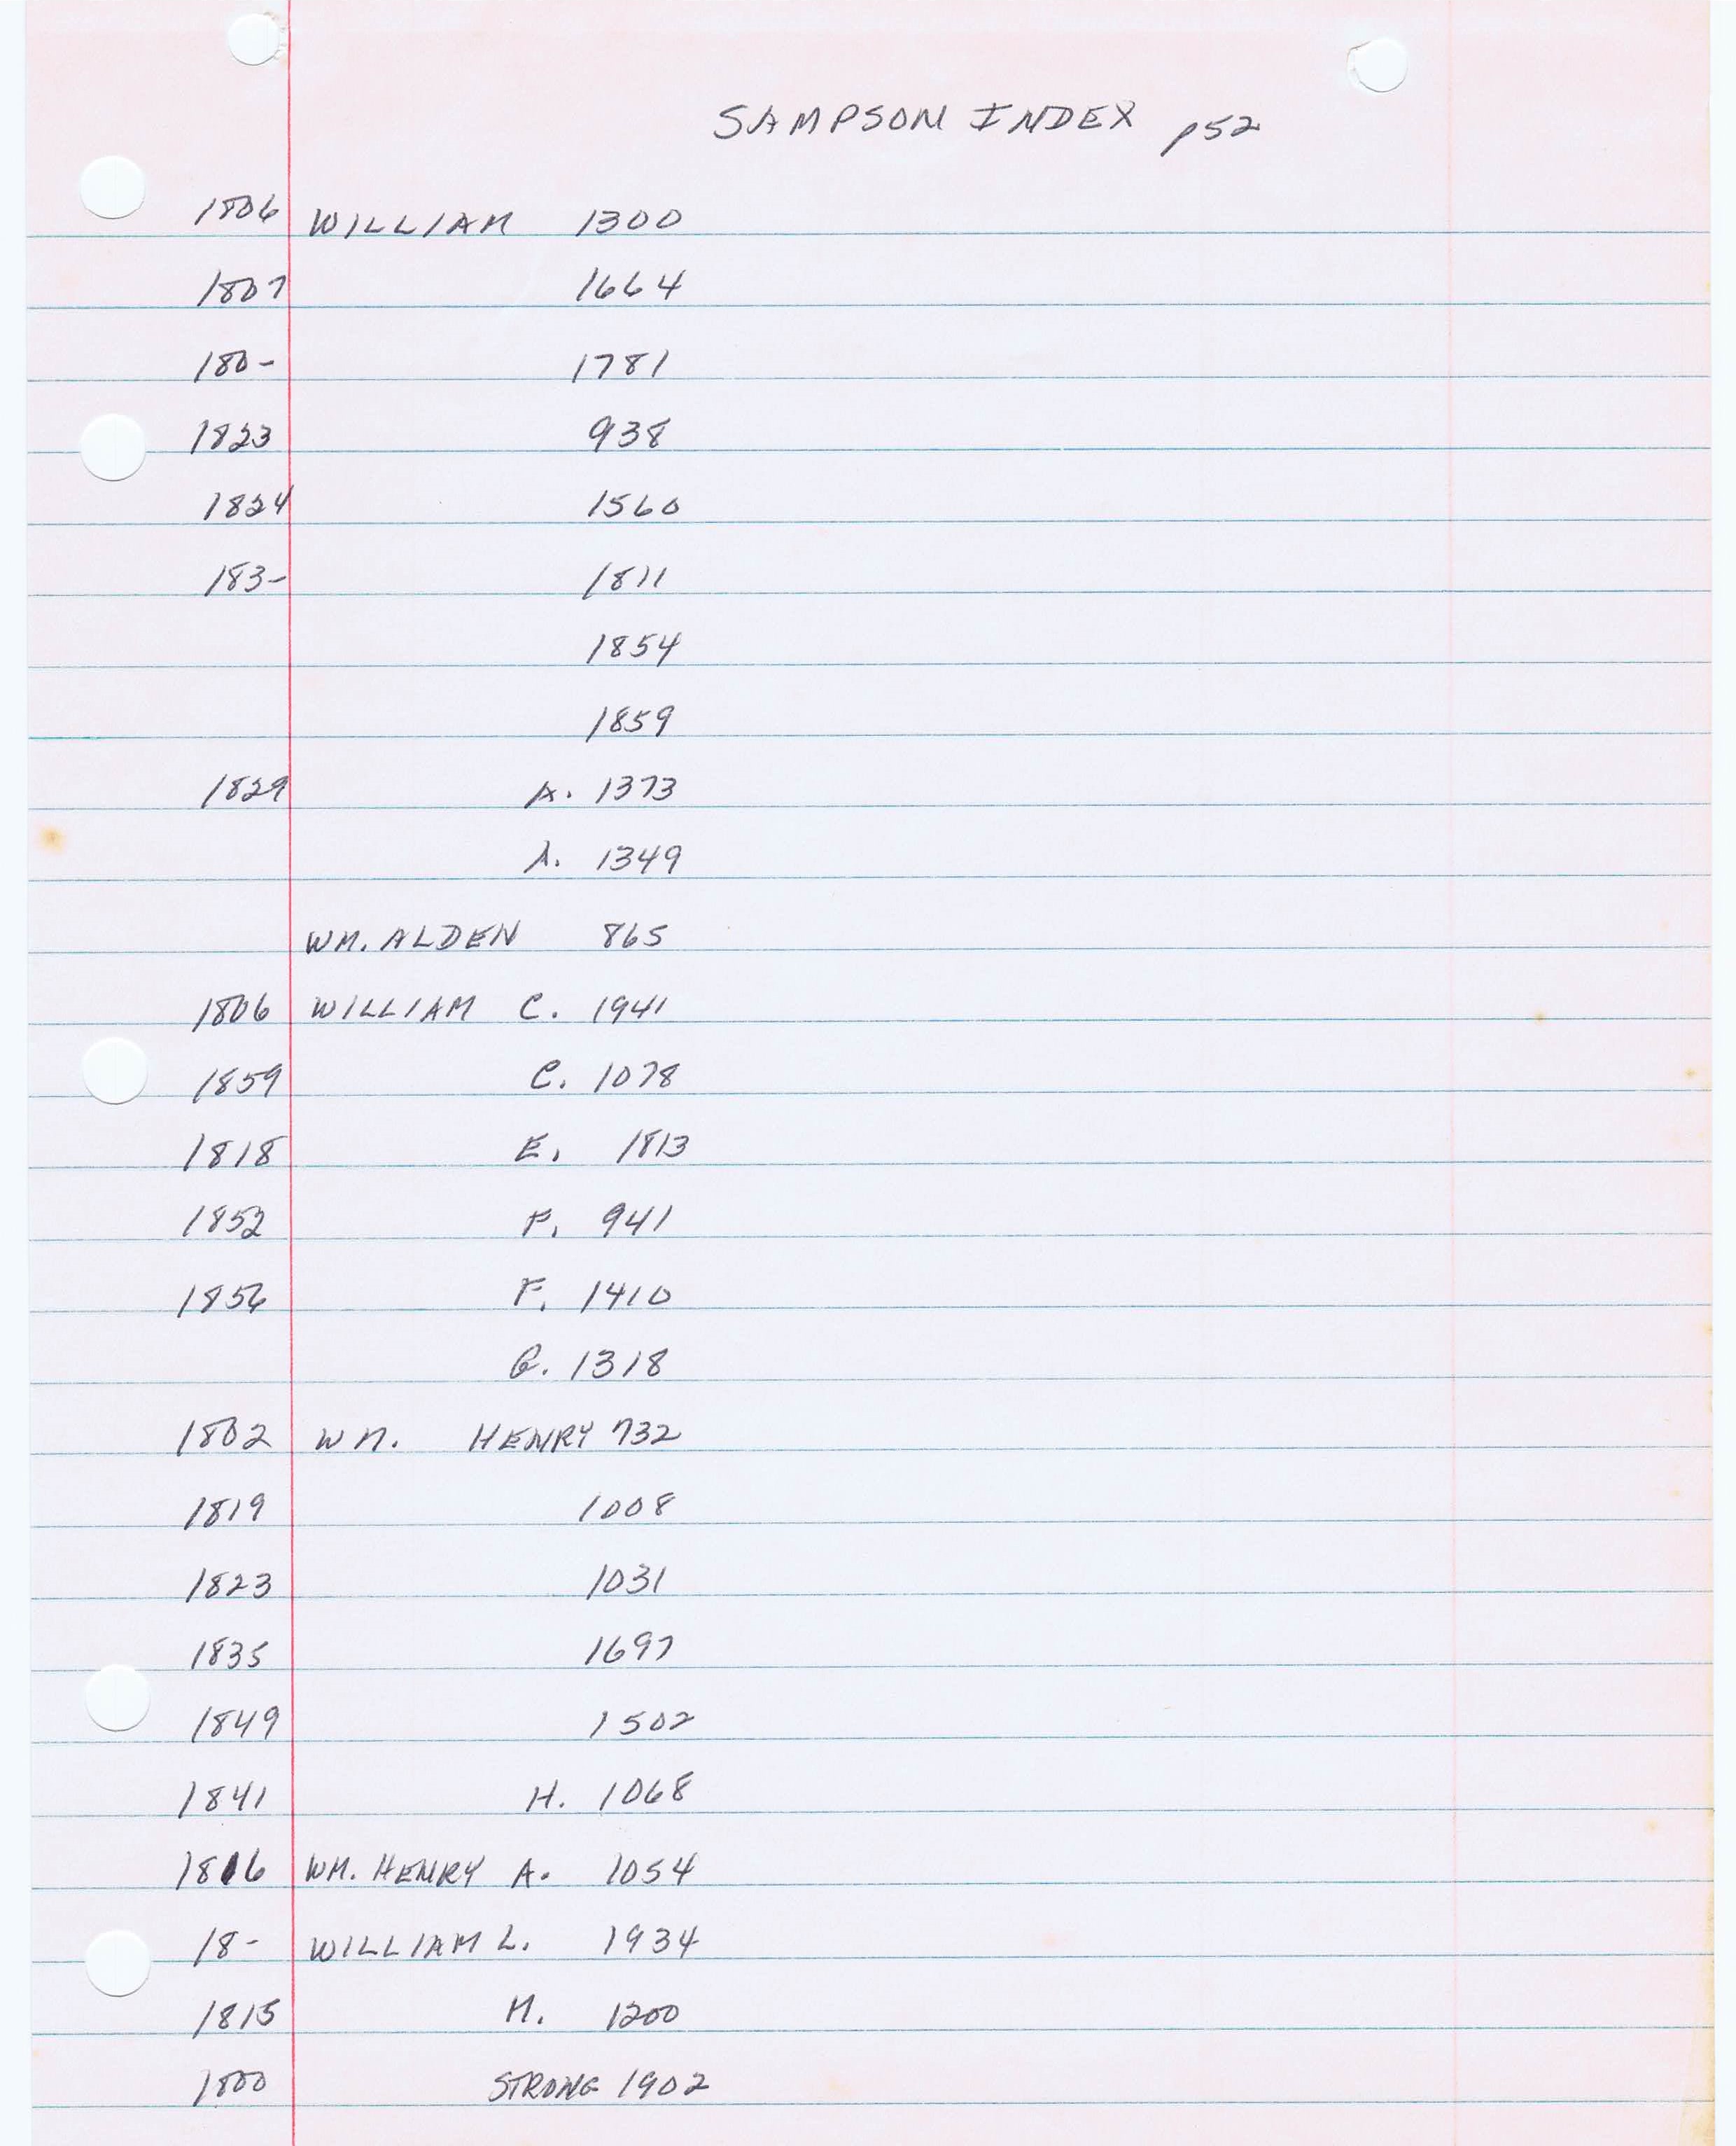 SAMPSON INDEX p52
1806 WILLIAM 1300
1807 1664
180- 1781
1823 938
1824 1560
183- 1811
1854
1859
1829 A. 1373
A. 1349
WM. ALDEN 865
1806 WILLIAM C. 1941
1859 C. 1078
1818 E. 1813
1852 F. 941
1856 F. 1410
G. 1318
1802 WM. HENRY 732
1819 1008
1823 1031
1835 1697
1849 1502
1841 H. 1068
1816 WM. HENRY A. 1054
18- WILLIAM L. 1934
1815 M. 1200
1800 STRONG 1902